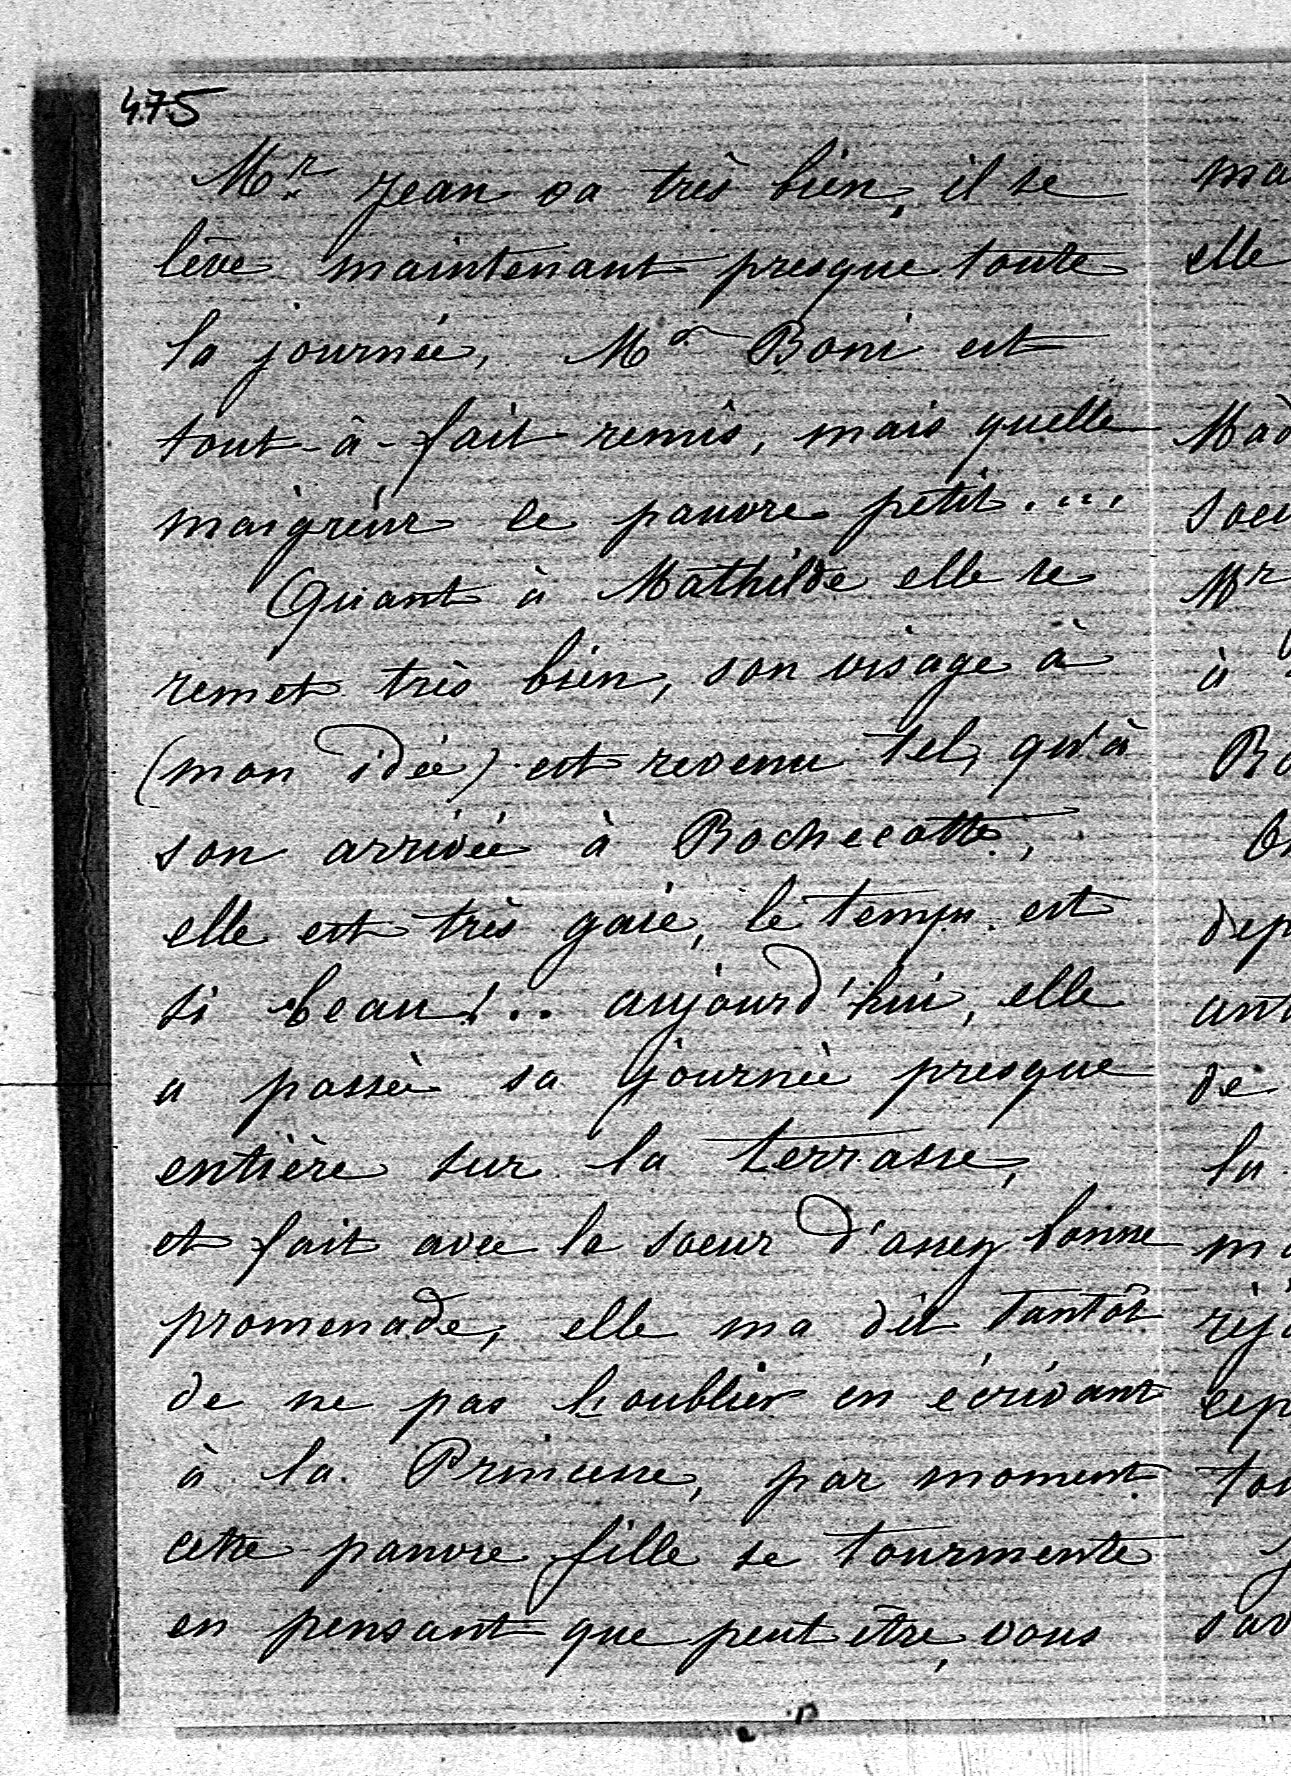 475
Mr Jean va très bien, il se
lève maintenant presque toute
la journée, Mr Boni est
tout-à-fait remis, mais quelle
maigreur ce pauvre petit....
Quant à Mathilde elle se
remet très bien, son visage à
(mon idée) est revenu tel, qu'à
son arrivée à Rochecotte,
elle est très gaie, le temps est
si beau!.. aujourd'hui, elle
a passée sa journée presque
entière sur la terrasse,
et fait avec la soeur d'assez bonne
promenade, elle ma dit tantôt
de ne pas l'oublier en écrivant
à la Princesse, par moment
cette pauvre fille se tourmente
en pensant que peut être, vous
ma
elle
Mad
soeu
Mr
à
dep
ant
de
la
ma
cep
tou
sav